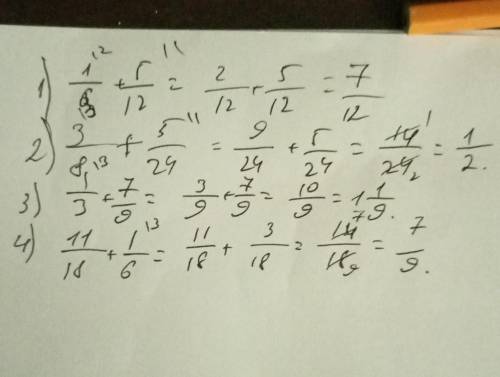 1) 1/6 + 5/12 = 2/12 + 5/12 = 7/12
2) 3/8 + 5/24 = 9/24 + 5/24 = 14/24 = 1/2.
3) 1/3 + 7/9 = 3/9 + 7/9 = 10/9 = 1 1/9.
4) 11/18 + 1/6 = 11/18 + 3/18 = 14/18 = 7/9.